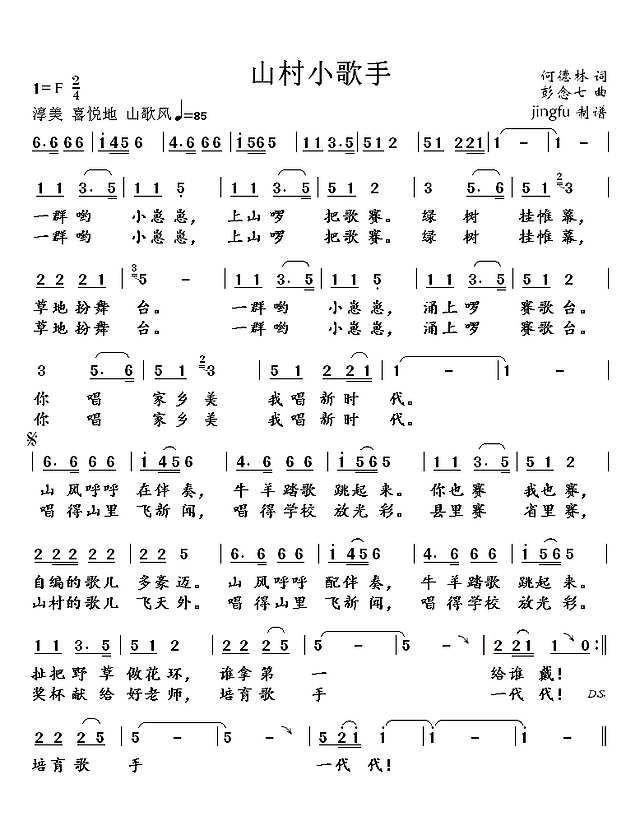 山村小歌手
1=F 2/4
何德林 词
彭念七 曲
淳美 喜悦地 山歌风 ♩=85
jingfu 制谱
6.6 6 6 6 | i 4 5 6 | 4.6 6 6 6 | i 5 6 5 | 5 1 1 2 | 5 1 1 2 | 5 1 2 2 1 | 5 1 1 |
| 1 1 3. 5 | 1 1 5 | 1 1 3. 5 | 5 1 2 | 3 5. 6 | 5 1 2 3 |
一群哟 小崽崽, 上山啰 把歌赛。绿树 挂帷幕,
一群哟 小崽崽, 上山啰 把歌赛。绿树 挂帷幕,
| 2 2 2 1 | 3 5 - | 1 1 3. 5 | 1 1 5 | 1 1 3. 5 | 5 1 2 |
草地扮舞台。 一群哟 小崽崽, 涌上啰 赛歌台。
草地扮舞台。 一群哟 小崽崽, 涌上啰 赛歌台。
| 3 5. 6 | 5 1 2 3 | 5 1 2 2 1 | 1 - | 1 - |
你 唱 家乡美 我唱新时 代。
你 唱 家乡美 我唱新时 代。
| 6. 6 6 6 | i 4 5 6 | 4. 6 6 6 | i 5 6 5 | 1 1 3. 5 | 5 1 2 |
山 风呼呼 在伴 奏, 牛 羊踏歌 跳起 来。你也赛 我也赛,
唱 得山里 飞新 闻, 唱 得学校 放光 彩。县里赛 省里赛,
| 2 2 2 5 | 2 2 2 | 6. 6 6 6 | i 4 5 6 | 6. 6 6 6 | i 5 6 5 |
自编的歌儿 多豪迈。山 风呼呼 配伴 奏, 牛 羊踏歌 跳起 来。
山村的歌儿 飞天外。唱 得山里 飞新 闻, 唱 得学校 放光 彩。
| 1 1 3. 5 | 5 1 2 | 2 2 2 5 | 5 - | 5 - | 2 2 1 | 1 0 :||
扯把野 草 做花 环, 谁拿第 一 给谁 戴!
奖杯献 给 好老 师, 培育歌 手 一代 代! D.S.
| 2 2 2 5 | 5 - | 5 - | 5 2 i | i - | i - ||
培育歌 手 一代 代!